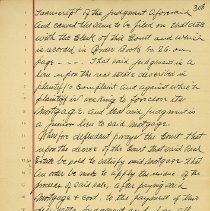 Transcript of the judgment aforesaid
and caused the same to be filed on said date
with the Clerk of this Court and which
is record in Order Book No 26. on
page - - - . That said judgment is a
lien upon the real estate described in
plaintiff's Complaint and against which
plaintiff is seeking to foreclose its
Mortgage &. and that said judgment is
a junior lien to said mortgage.
Wherefor defendant prays the Court that
upon the decree of the Court that said Real
Estate be sold to satisfy said mortgage that
an order be made to apply the residue of the
proceeds of said sale, after paying said
Mortgage & Cost. to the payment of this